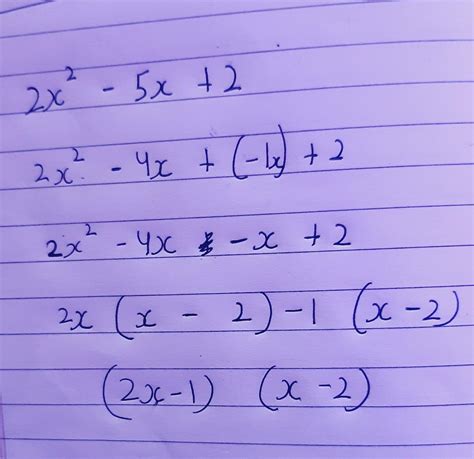 2x² - 5x + 2
2x² - 4x + (-1x) + 2
2x² - 4x - x + 2
2x (x - 2) - 1 (x - 2)
(2x - 1) (x - 2)